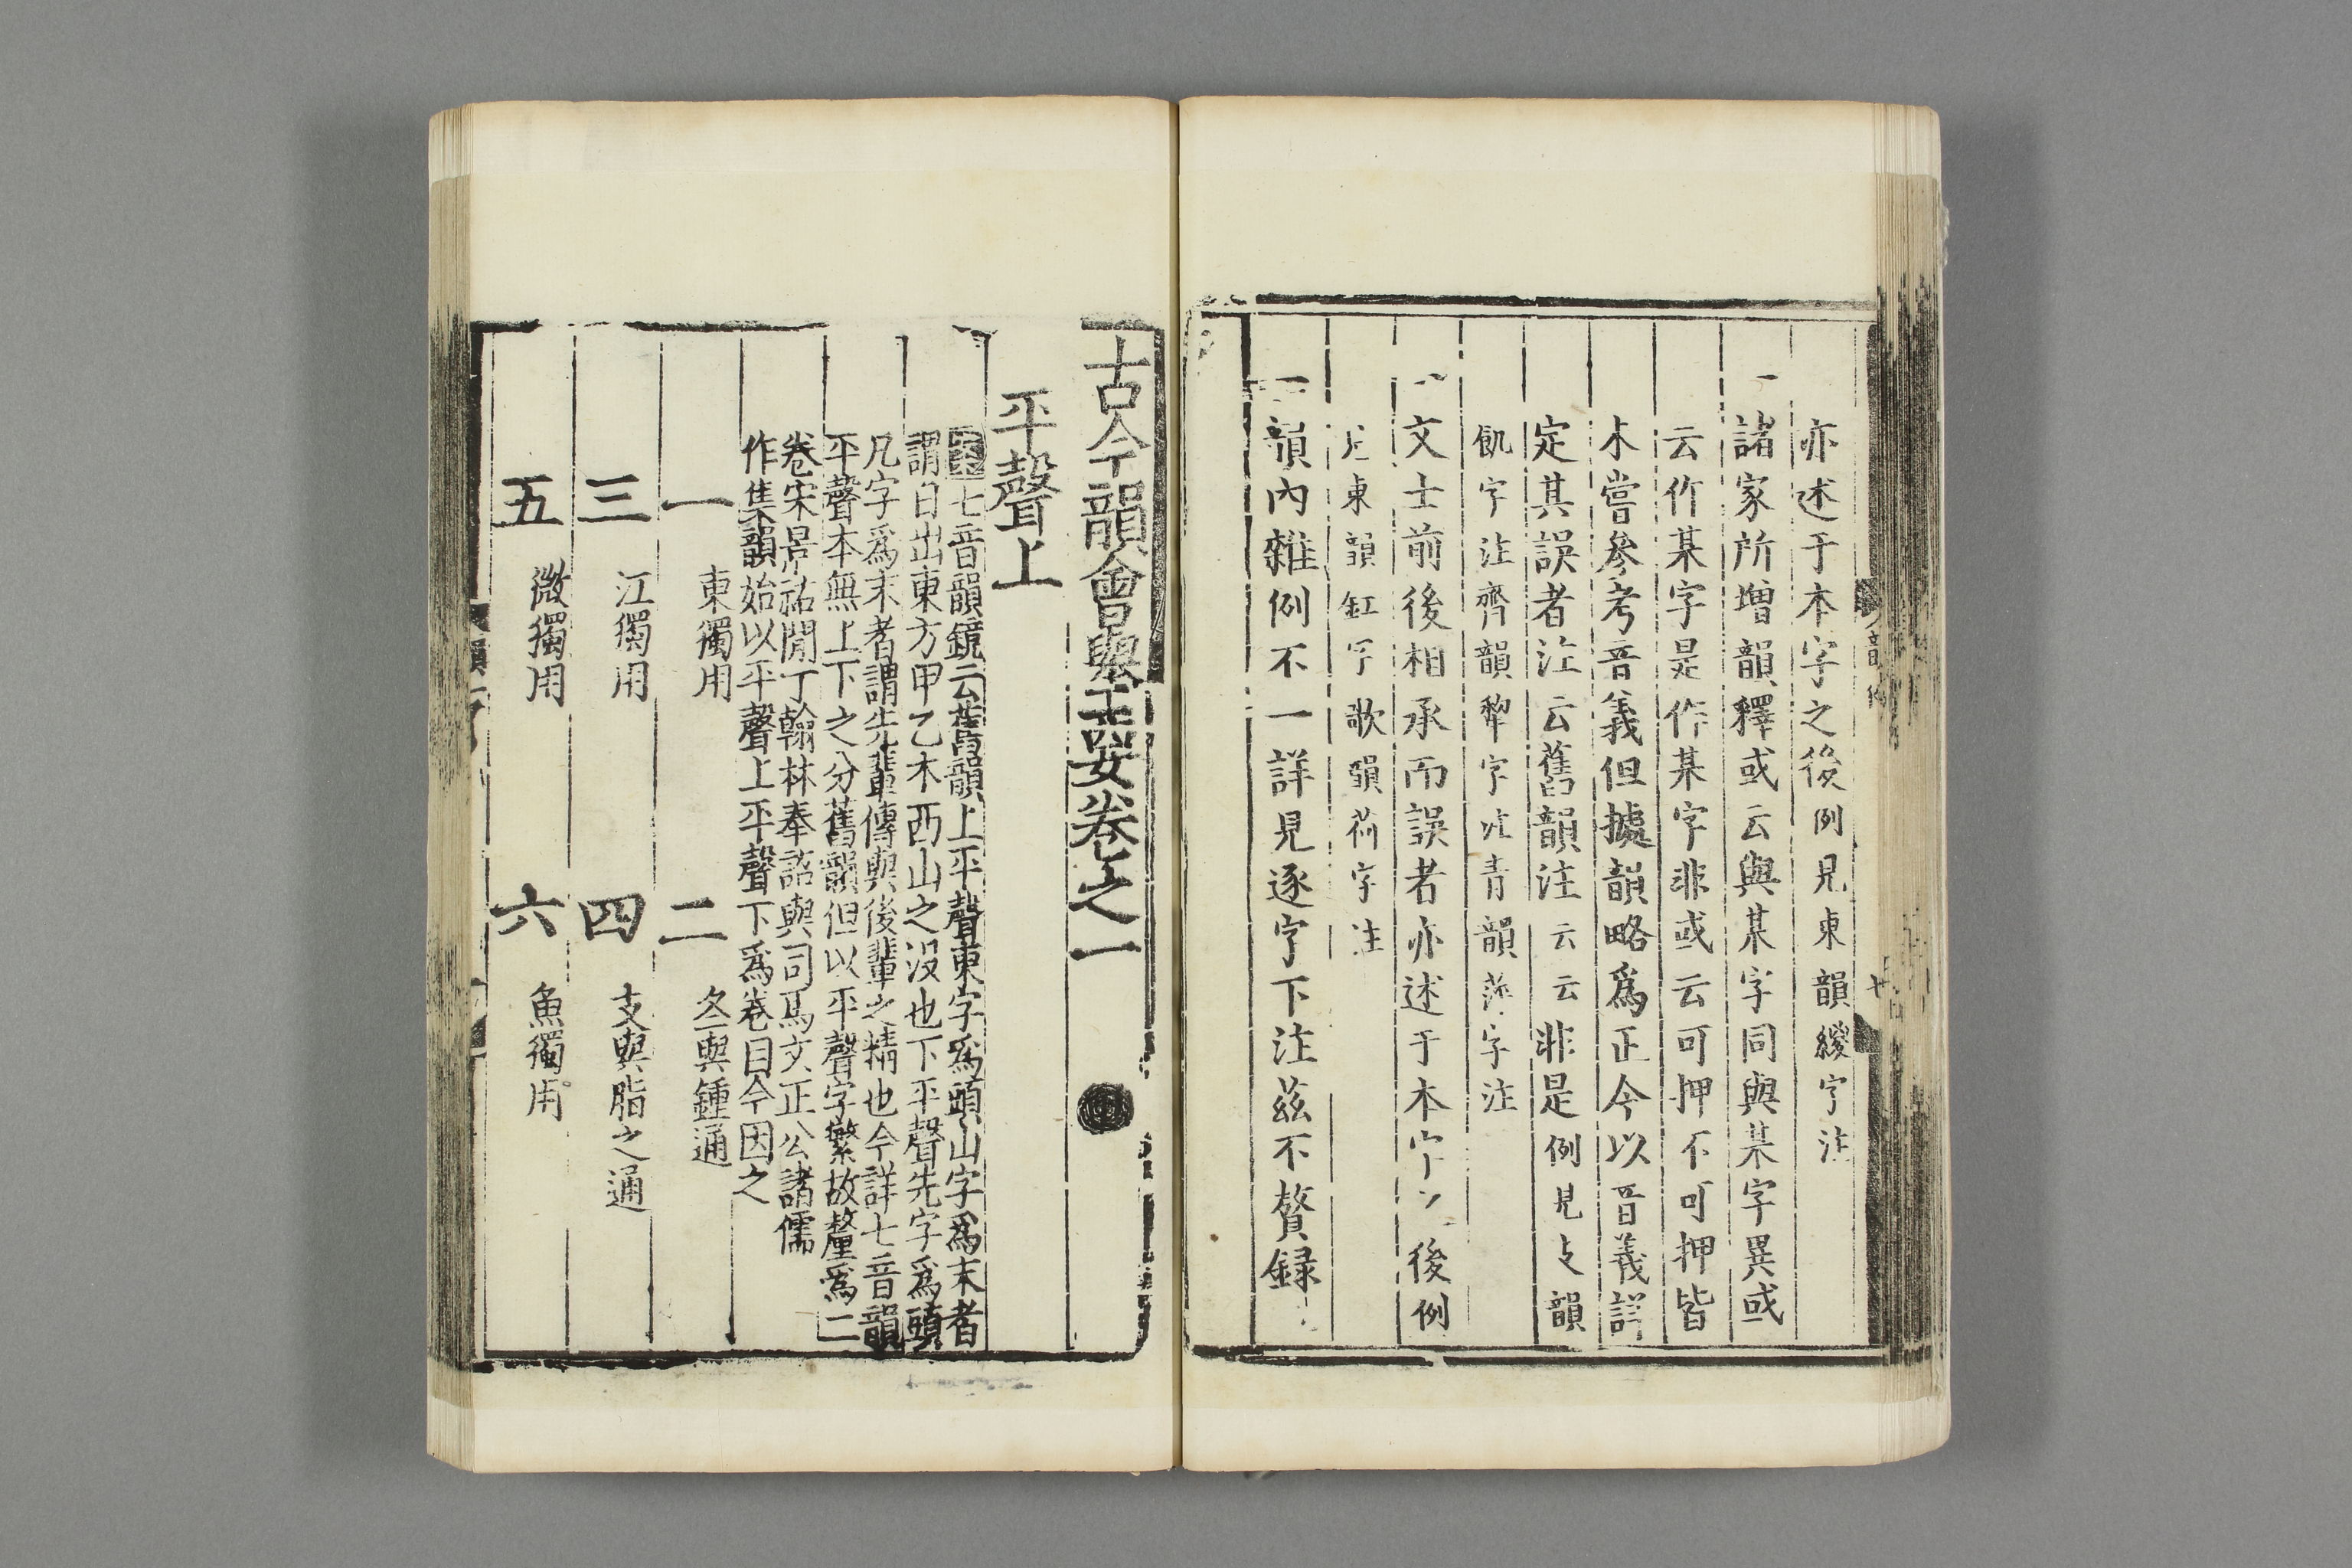 亦述于本字之後例見東韻緵字注
一諸家所增韻釋或云與某字同與某字異或
云作某字是作某字非或云可押不可押皆
未嘗參考音義但據韻略爲正今以音義詳
定其誤者注云舊韻注云云非是例見支韻
飢字注齊韻犂字注青韻字注
文士前後相承而誤者亦述于本字之後例
見東韻釭字歌韻荷字注
一韻內雜例不一詳見逐字下注茲不贅録
古今韻會舉要卷之一
平聲上
七音韻鏡云舊韻上平聲東字爲頭山字爲末者
謂日出東方甲乙木西山之没也下平聲先字爲頭
凡字爲末者謂先輩傳與後輩之精也今詳七音韻
平聲本無上下之分舊韻但以平聲字繁故釐爲二
卷宋景祐閒丁翰林奉詔與司馬文正公諸儒
作集韻始以平聲上平聲下爲卷目今因之
一 東獨用 二 冬與鍾通
三 江獨用 四 支與脂之通
五 微獨用 六 魚獨用